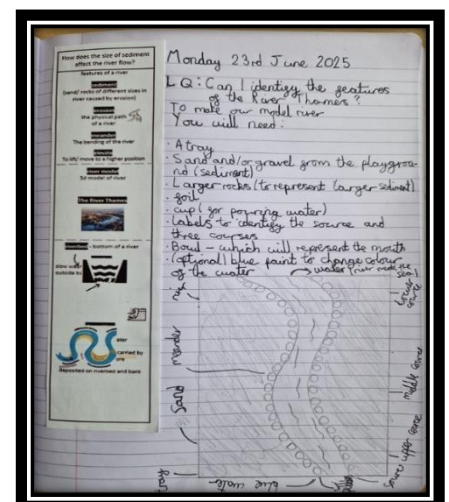 How does the size of sediment
affect the river flow?
features of a river
sediment
(sand/ rocks of different sizes in
river caused by erosion)
the physical path
of a river
meander
The bending of the river
elevate
To lift/ move to a higher position
river model
3d model of river
The River Thames
- bottom of a river
slow
outside
carried by
Deposited on riverbed and bank
Monday 23rd June 2025
LQ: Can I identify the features
of the River Thames?
To make our model river
You will need:
• A tray
• Sand and/or gravel from the playgrou-
nd (sediment)
• Larger rocks (to represent larger sediment)
• foil
• cup (for pouring water)
• Labels to identify the source and
three courses
• Bowl - which will represent the mouth
• (optional) blue paint to change colour
of the water
water (river meets the
sea)
lower
course
meander
middle course
Sand
upper course
blue water